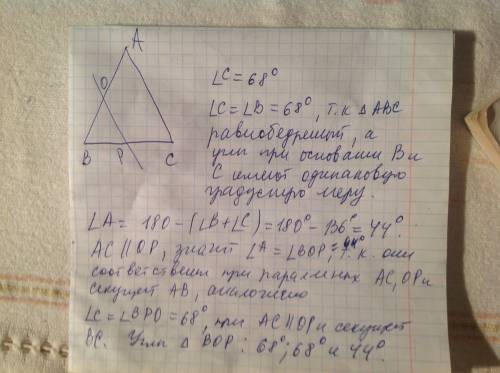 A
O
B
P
C
∠C = 68°
∠C = ∠B = 68°, т.к △ ABC
равнобедренный, а
углы при основании B и
C имеют одинаковую
градусную меру.
∠A = 180 - (∠B + ∠C) = 180° - 136° = 44°.
AC || OP, значит ∠A = ∠BOP = 44°, т.к. они
соответствен при паралельных AC, OP и
секущей AB, аналогично
∠C = ∠BPO = 68°, при AC || OP и секущей
BC. Углы △ BOP: 68°; 68° и 44°.